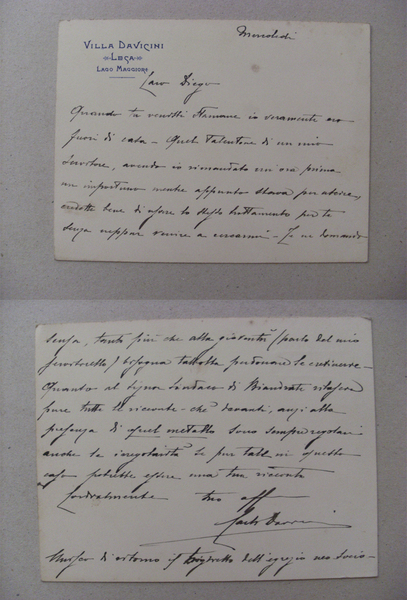 VILLA DAVICINI
LESA
LAGO MAGGIORE
Mercoledì
Caro Diego
Quando tu venisti stamane io veramente ero
fuori di casa - Quel talentone di un mio
servitore, avendo io rimandato un'ora prima
un importuno mentre appunto stava per uscire,
credette bene di usare lo stesso trattamento per te
senza neppur venire a - Te ne domando
scusa, tanto più che alla gioventù (parlo del mio
servitorello) bisogna talvolta perdonare le
Quanto al Signor Sindaco di Biandrate
pure tutte le ricevute - chè davanti, anzi alla
presenza di quel metallo sono sempre regolari
anche le irregolarità Se pur tale in questo
caso potesse essere una tua ricevuta
Cordialmente tuo aff
Unisco di ritorno il biglietto dell'egregio neo Socio -